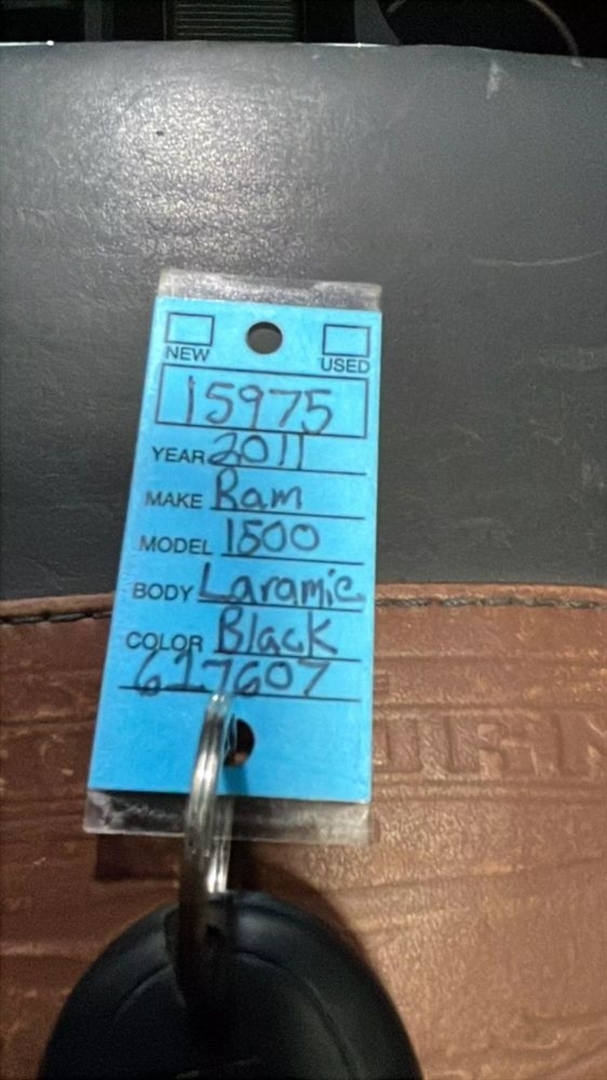 NEW USED
15975
YEAR 2011
MAKE Ram
MODEL 1500
BODY Laramie
COLOR Black
617607